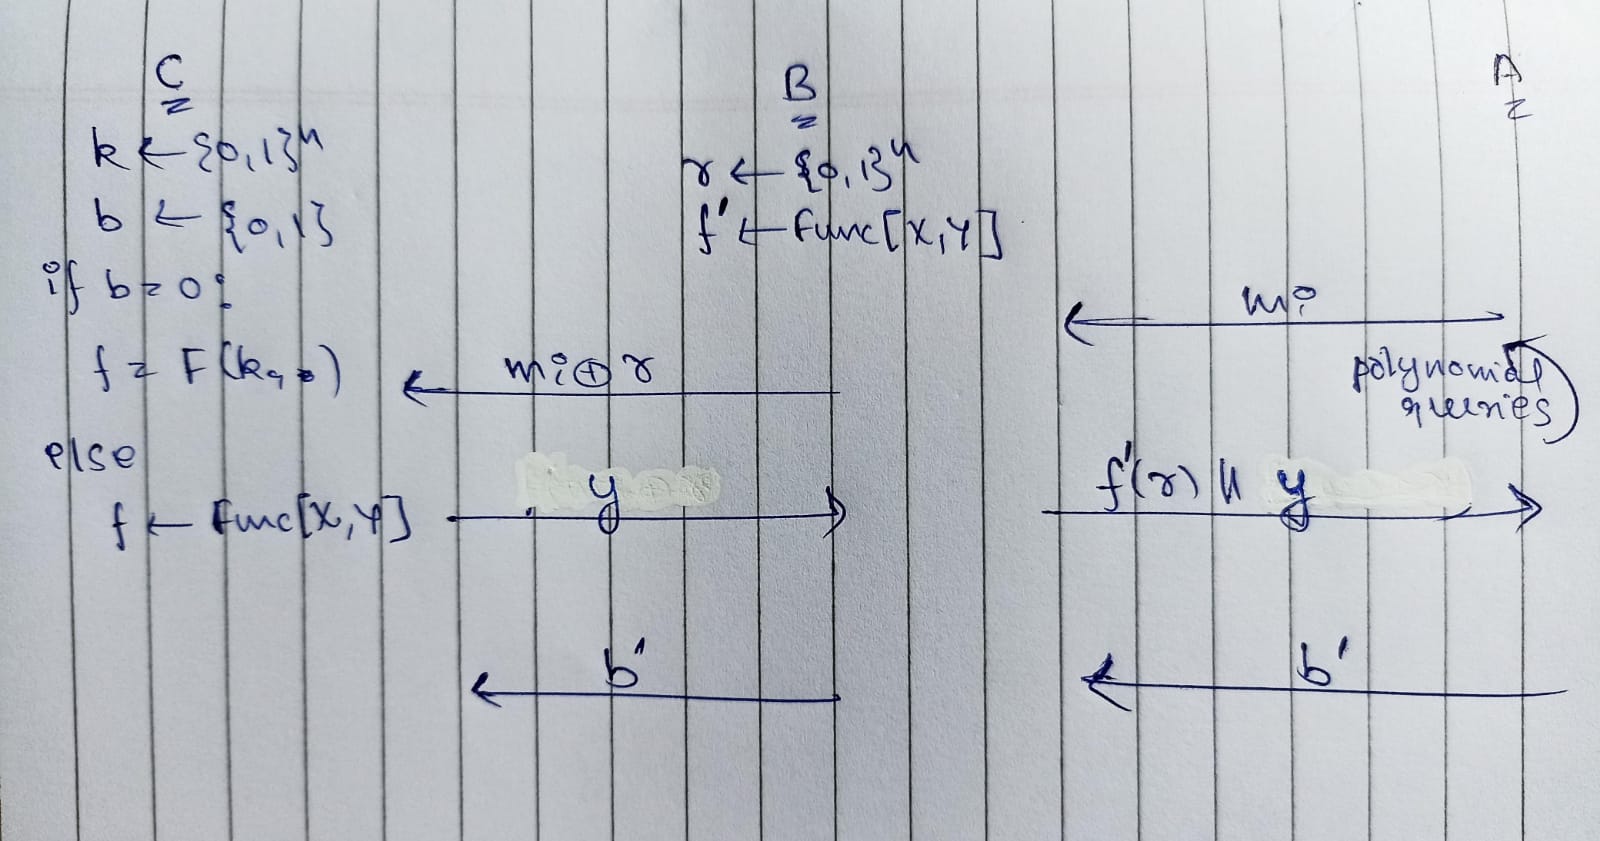 C
k ← {0,1}ⁿ
b ← {0,1}
if b = 0:
f = F(k, •)
else
f ← Func[X,Y]
B
r ← {0,1}ⁿ
f' ← Func[X,Y]
mi ⊕ r
y
b'
A
mi
polynomial
queries
f'(r) || y
b'